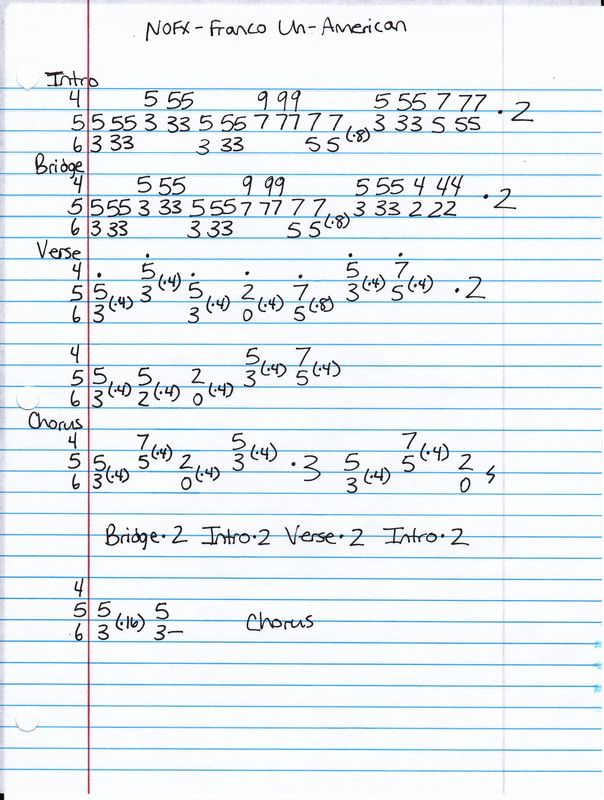 NOFX - Franco Un-American
Intro
4 5 55 9 99 5 55 7 77
5 5 55 3 33 5 55 7 77 7 7 (·8) 3 33 5 55 · 2
6 3 33 3 33 5 5
Bridge
4 5 55 9 99 5 55 4 44
5 5 55 3 33 5 55 7 77 7 7 3 33 2 22 · 2
6 3 33 3 33 5 5 (·8)
Verse
4 5 (·4) 5 (·4) 7 (·4)
5 5 3 5 2 7 3 5 · 2
6 3 (·4) 3 (·4) 0 (·4) 5 (·8)
4 5 7
5 5 5 2 3 (·4) 5 (·4)
6 3 (·4) 2 (·4) 0 (·4)
Chorus
4 7 5 7
5 5 5 (·4) 2 3 (·4) · 3 5 5 (·4) 2
6 3 (·4) 0 (·4) 3 (·4) 0
Bridge · 2 Intro · 2 Verse · 2 Intro · 2
4
5 5 5
6 3 (·16) 3— Chorus